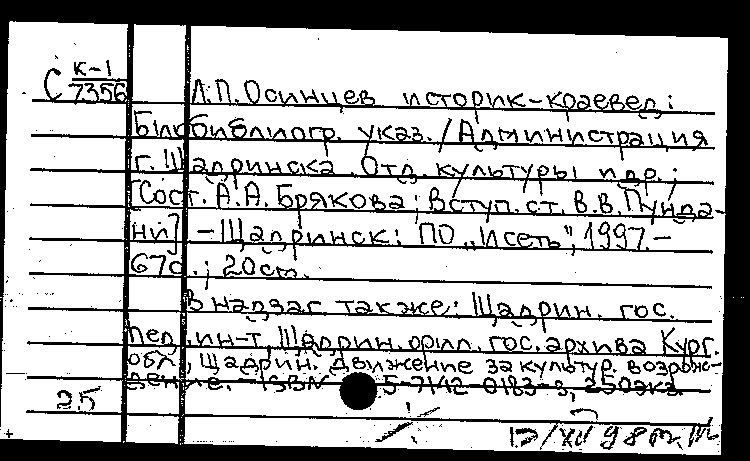 С К-1
7356
Л.П. Осинцев историк-краевед:
Биобиблиогр. указ. / Администрация
г. Шадринска. Отд. культуры и др.;
[Сост. А.А. Брякова; Вступ. ст. В.В. Пунда-
ни] - Шадринск: ПО „Исеть", 1997. -
67с.; 20см.
В надзаг. также: Шадрин. гос.
пед. ин-т, Шадрин. фил. гос. архива Кург.
обл., Шадрин. движение за культур. возрож-
дение. - ISBN 5-7142-0183-3, 250экз.
25